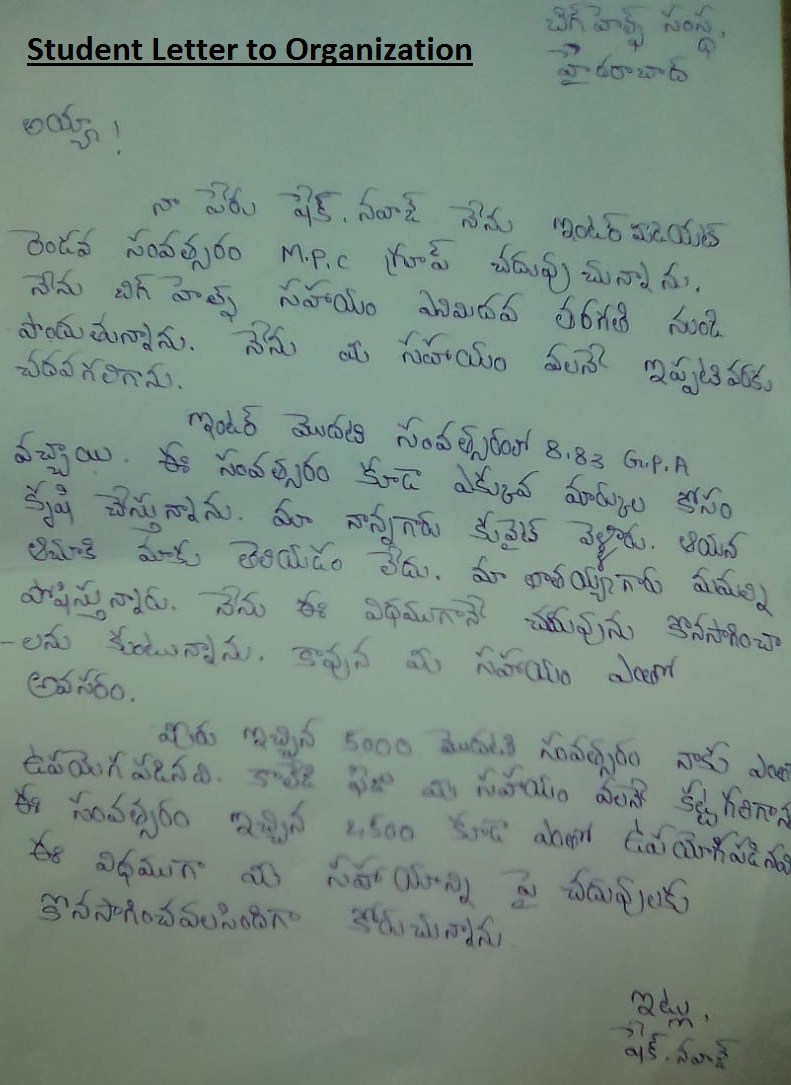 బిగ్ హెల్ప్ సంస్థ,
Student Letter to Organization
హైదరాబాద్
అయ్యా!
నా పేరు షేక్. నవాజ్ నేను ఇంటర్ మీడియట్
రెండవ సంవత్సరం M.P.C గ్రూప్ చదువు చున్నాను.
నేను బిగ్ హెల్ప్ సహాయం ఎనిమిదవ తరగతి నుండి
పొందుతున్నాను. నేను మీ సహాయం వలనే ఇప్పటివరకు
చదవగలిగాను.
ఇంటర్ మొదటి సంవత్సరంలో 8.83 G.P.A
వచ్చాయి. ఈ సంవత్సరం కూడా ఎక్కువ మార్కుల కోసం
కృషి చేస్తున్నాను. మా నాన్నగారు కువైట్ వెళ్ళారు. ఆయన
ఆచూకి మాకు తెలియడం లేదు. మా తాతయ్యగారు మమల్ని
పోషిస్తున్నారు. నేను ఈ విధముగానే చదువును కొనసాగించా
-లను కుంటున్నాను. కావున మీ సహాయం ఎంతో
అవసరం.
మీరు ఇచ్చిన 5000 మొదటి సంవత్సరం నాకు ఎంతో
ఉపయోగ పడినవి. కాలేజి ఫీజు మీ సహాయం వలనే కట్ట గలిగాను
ఈ సంవత్సరం ఇచ్చిన 4,500 కూడా ఎంతో ఉపయోగపడినవి
ఈ విధముగా మీ సహాయాన్ని పై చదువులకు
కొనసాగించవలసిందిగా కోరుచున్నాను.
ఇట్లు,
షేక్. నవాజ్